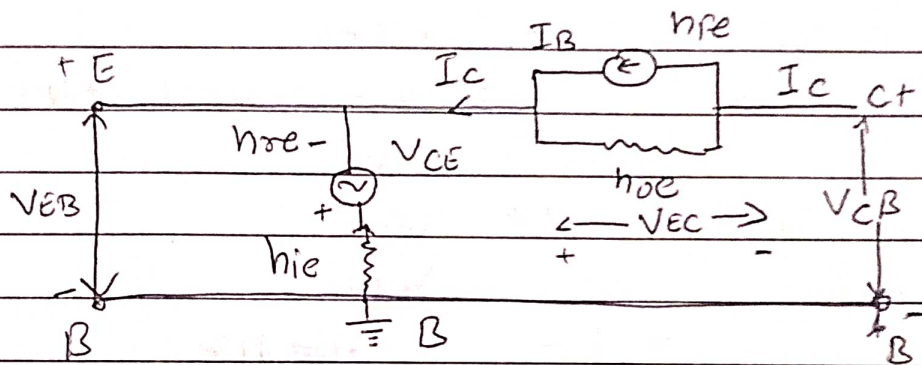 IB hfe
+ E IC IC C+
hre - VCE
hoe
VEB + VEC VCB
hie + -
- B B B -